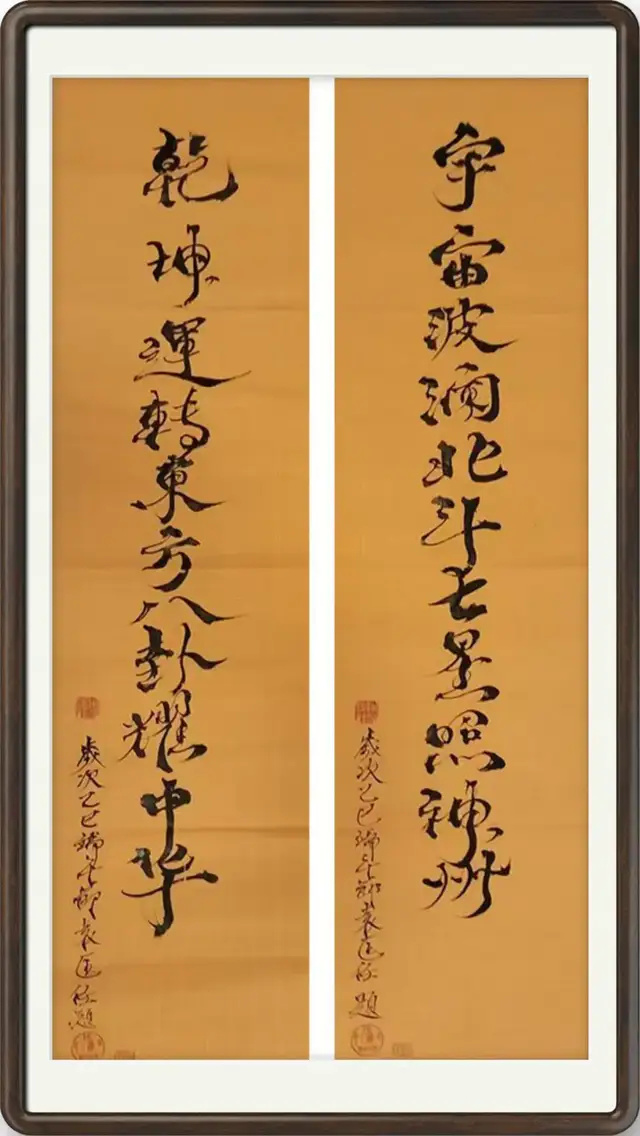 宇宙波瀾北斗七星照神州
歲次乙巳端午節袁題
乾坤運轉東方八卦耀中華
歲次乙巳端午節袁題